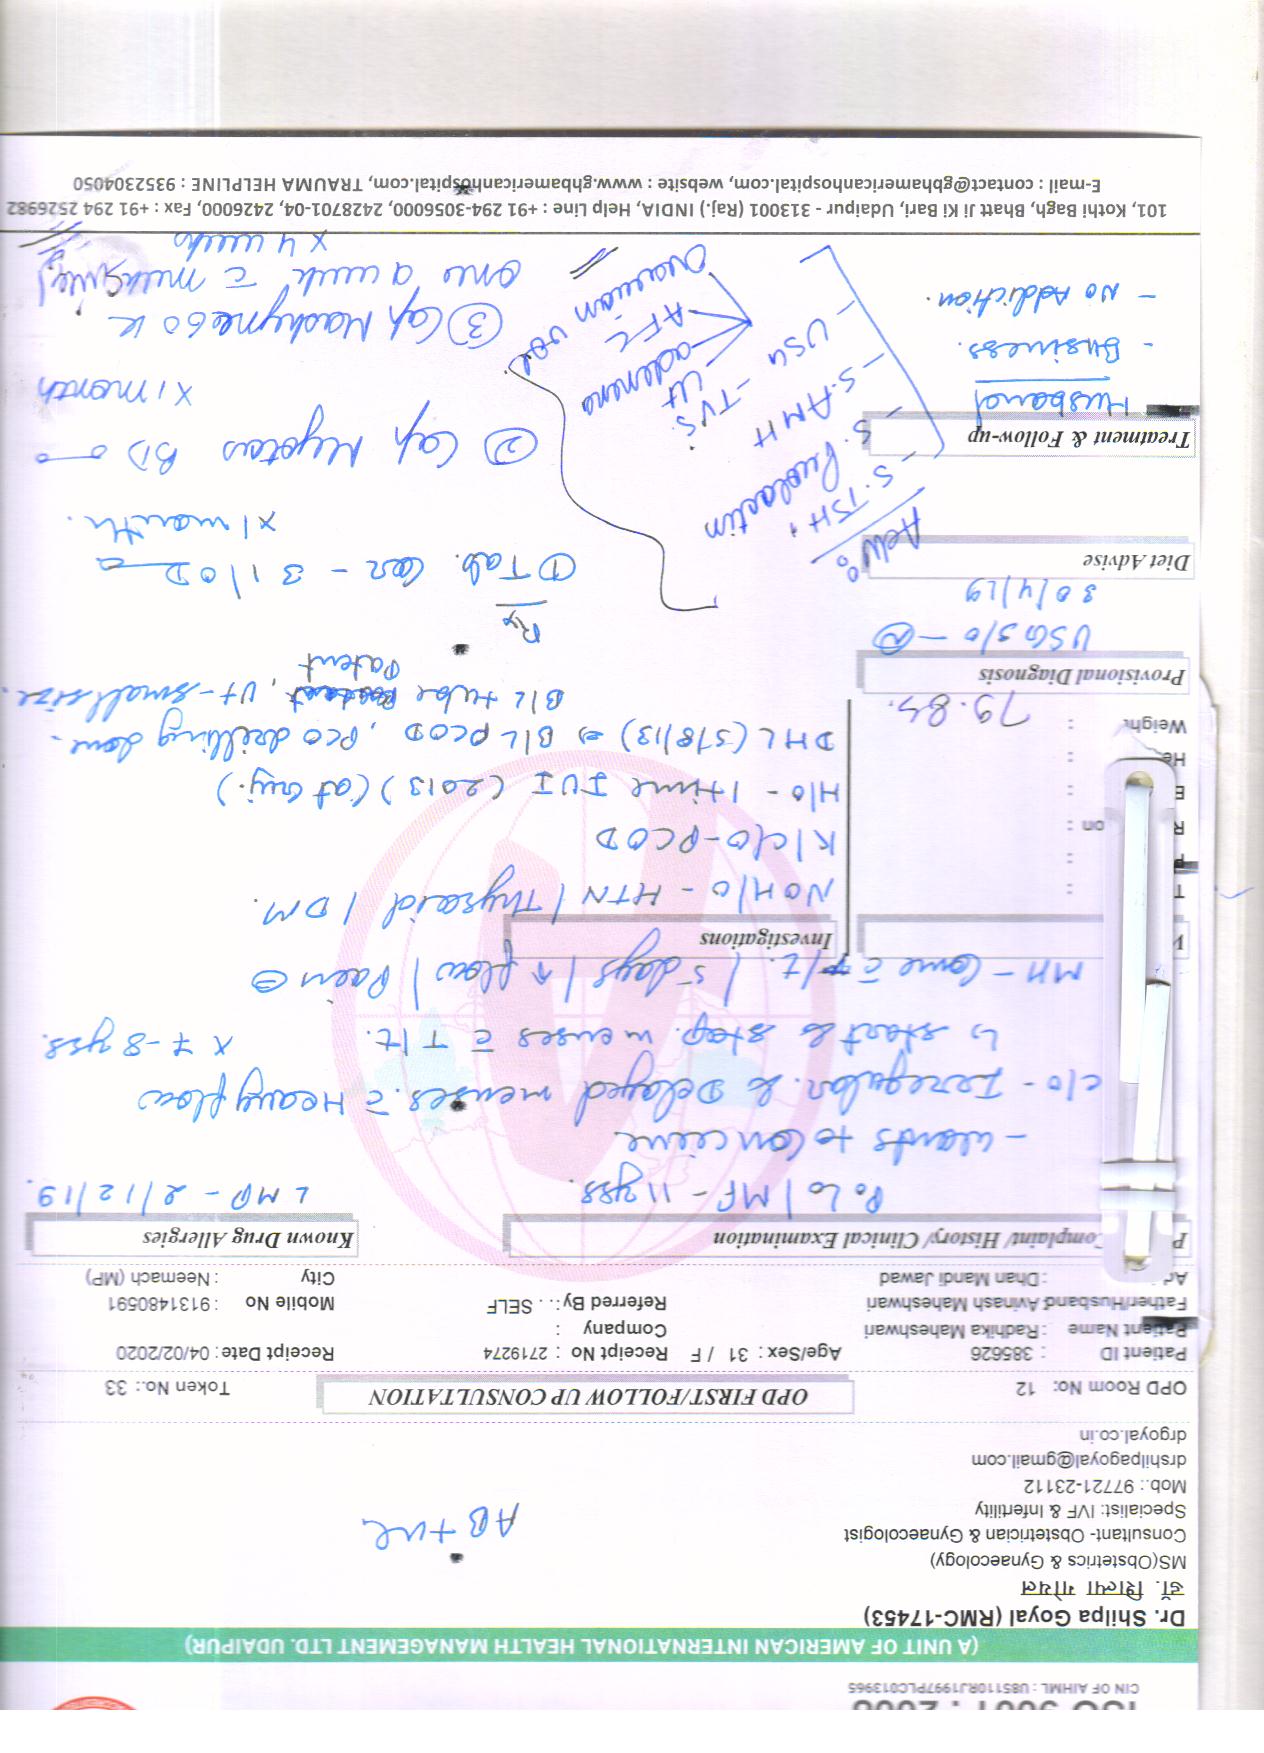 ISO 9001 : 2008
CIN OF AIHML : U85110RJ1997PLC013965
(A UNIT OF AMERICAN INTERNATIONAL HEALTH MANAGEMENT LTD. UDAIPUR)
Dr. Shilpa Goyal (RMC-17453)
डॉ. शिल्पा गोयल
MS(Obstetrics & Gynaecology)
Consultant- Obstetrician & Gynaecologist
Specialist: IVF & Infertility
Mob.: 97721-23112
drshilpagoyal@gmail.com
drgoyal.co.in
AB +ve
OPD Room No: 12 OPD FIRST/FOLLOW UP CONSULTATION Token No.: 33
Patient ID : 385626 Age/Sex : 31 / F Receipt No : 2719274 Receipt Date : 04/02/2020
Patient Name : Radhika Maheshwari Company :
Father/Husband: Avinash Maheshwari Referred By: . . SELF Mobile No : 9131480591
Ad :Dhan Mandi Jawad City : Neemach (MP)
P Complaint/ History/ Clinical Examination Known Drug Allergies
P₀L₀ / MF - 11 yrs. LMP - 2/12/19.
- wants to conceive.
c/o - Irregular & Delayed menses. c̄ Heavy flow
↳ start & stop. menses c̄ T/t. x 7-8 yrs.
MH - Come c̄ T/t. / 5 days / ↑ flow / Pain ⊖
V Investigations
No H/o - HTN / Thyroid / DM.
K/c/o - PCOD
H/o - 1 time IUI (2013) (at Guj.)
DHL (5/8/13) ⇒ B/L PCOD, PCO drilling done.
B/L tube Patent, Ut - small size.
T :
P :
R on :
B :
He :
Weight : 79.85.
Provisional Diagnosis
USG S/O - (N)
30/4/19
Diet Advise
Adv:
- S. TSH,
- S. Prolactin
- S. AMH
- USG - TVS.
Ut
adenoma
AFC
Ovarian vol
Rx
① Tab. Con - 31 / OD
x 1 month.
② Cap Myotas BD
x 1 month
③ Cap Mashyne 60 K
once a week c̄ milk
x 4 weeks
Treatment & Follow-up
Husband
- Business.
- No Addiction.
101, Kothi Bagh, Bhatt Ji Ki Bari, Udaipur - 313001 (Raj.) INDIA, Help Line : +91 294-3056000, 2428701-04, 2426000, Fax : +91 294 2526982
E-mail : contact@gbhamericanhospital.com, website : www.ghbamericanhospital.com, TRAUMA HELPLINE : 9352304050